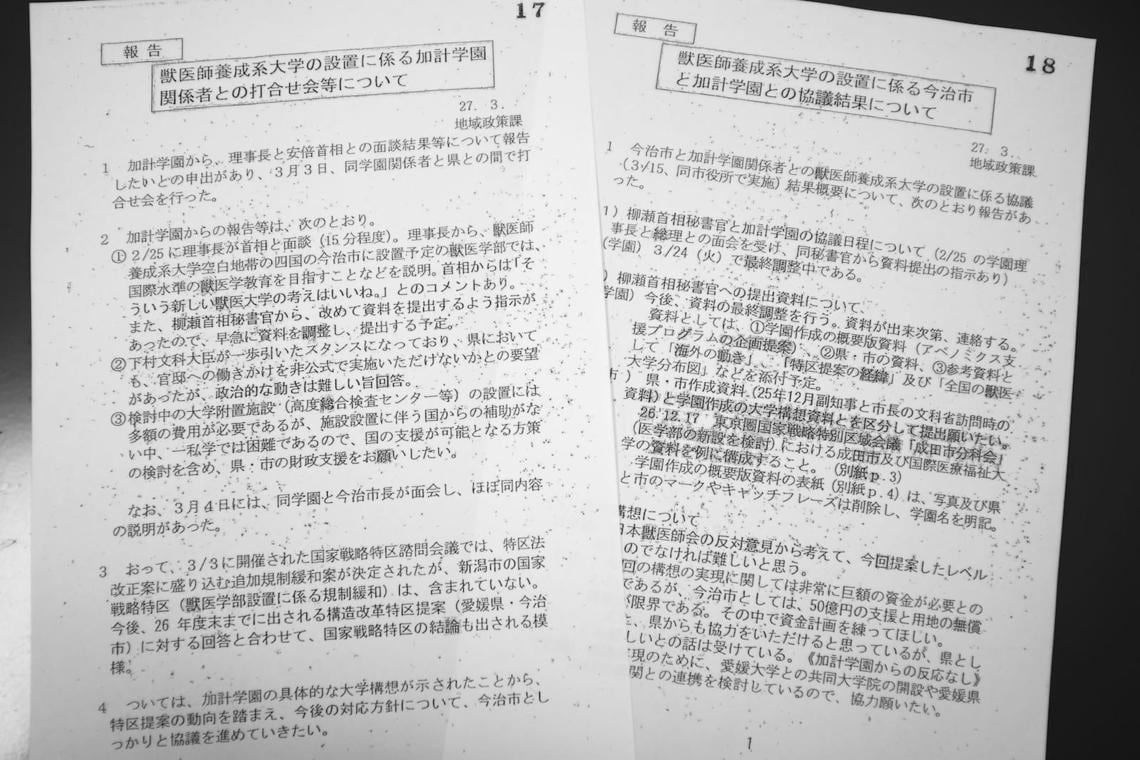 17
報 告
獣医師養成系大学の設置に係る加計学園
関係者との打合せ会等について
27. 3.
地域政策課
1 加計学園から、理事長と安倍首相との面談結果等について報告
したいとの申出があり、3月3日、同学園関係者と県との間で打
合せ会を行った。
2 加計学園からの報告等は、次のとおり。
① 2/25に理事長が首相と面談（15分程度）。理事長から、獣医師
養成系大学空白地帯の四国の今治市に設置予定の獣医学部では、
国際水準の獣医学教育を目指すことなどを説明。首相からは「そ
ういう新しい獣医大学の考えはいいね。」とのコメントあり。
また、柳瀬首相秘書官から、改めて資料を提出するよう指示が
あったので、早急に資料を調整し、提出する予定。
② 下村文科大臣が一歩引いたスタンスになっており、県において
も、官邸への働きかけを非公式で実施いただけないかとの要望
があったが、政治的な動きは難しい旨回答。
③ 検討中の大学附置施設（高度総合検査センター等）の設置には
多額の費用が必要であるが、施設設置に伴う国からの補助がな
い中、一私学では困難であるので、国の支援が可能となる方策
の検討を含め、県・市の財政支援をお願いしたい。
なお、3月4日には、同学園と今治市長が面会し、ほぼ同内容
の説明があった。
3 おって、3/3に開催された国家戦略特区諮問会議では、特区法
改正案に盛り込む追加規制緩和案が決定されたが、新潟市の国家
戦略特区（獣医学部設置に係る規制緩和）は、含まれていない。
今後、26 年度末までに出される構造改革特区提案（愛媛県・今治
市）に対する回答と合わせて、国家戦略特区の結論も出される模
様。
4 ついては、加計学園の具体的な大学構想が示されたことから、
特区提案の動向を踏まえ、今後の対応方針について、今治市とし
っかりと協議を進めていきたい。
18
報 告
獣医師養成系大学の設置に係る今治市
と加計学園との協議結果について
27. 3.
地域政策課
1 今治市と加計学園関係者との獣医師養成系大学の設置に係る協議
（3/15、同市役所で実施）結果概要について、次のとおり報告があ
った。
1）柳瀬首相秘書官と加計学園の協議日程について（2/25 の学園理
事長と総理との面会を受け、同秘書官から資料提出の指示あり）
(学園) 3/24（火）で最終調整中である。
）柳瀬首相秘書官への提出資料について、
学園）今後、資料の最終調整を行う。資料が出来次第、連絡する。
資料としては、①学園作成の概要版資料（アベノミクス支
援プログラムの企画提案）、②県・市の資料、③参考資料と
して「海外の動き」、「特区提案の経緯」及び「全国の獣医
大学分布図」などを添付予定。
市 ）県・市作成資料（25年12月副知事と市長の文科省訪問時の
資料）と学園作成の大学構想資料とを区分して提出願いたい。
26.12.17 東京圏国家戦略特別区域会議「成田市分科会」
（医学部の新設を検討）における成田市及び国際医療福祉大
学の資料を例に構成すること。（別紙p.3）
学園作成の概要版資料の表紙（別紙p.4）は、写真及び県
と市のマークやキャッチフレーズは削除し、学園名を明記。
構想について
日本獣医師会の反対意見から考えて、今回提案したレベル
のでなければ難しいと思う。
回の構想の実現に関しては非常に巨額の資金が必要との
であるが、今治市としては、50億円の支援と用地の無償
が限界である。その中で資金計画を練ってほしい。
、県からも協力をいただけると思っているが、県とし
しいとの話は受けている。《加計学園からの反応なし》
現のために、愛媛大学との共同大学院の開設や愛媛県
関との連携を検討しているので、協力願いたい。
1